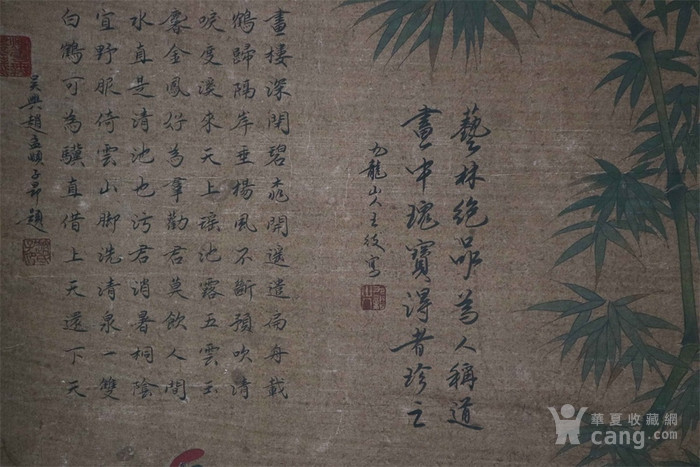 藝林絕品為人稱道
畫中瑰寶得者珍之
九龍山人王紱寫
畫樓深閉碧閒遙遣扁舟載
鶴歸隔岸垂楊風不斷預吹清
唳度來天上瑤池露五雲玉
金鳳好為羣勸君莫飲人間
水直是清池也污君消暑桐陰
宜野服倚雲山脚洗清泉一雙
白鶴可為驥直借上天還下天
吳興趙孟頫子昂題
華夏收藏網
cang.com